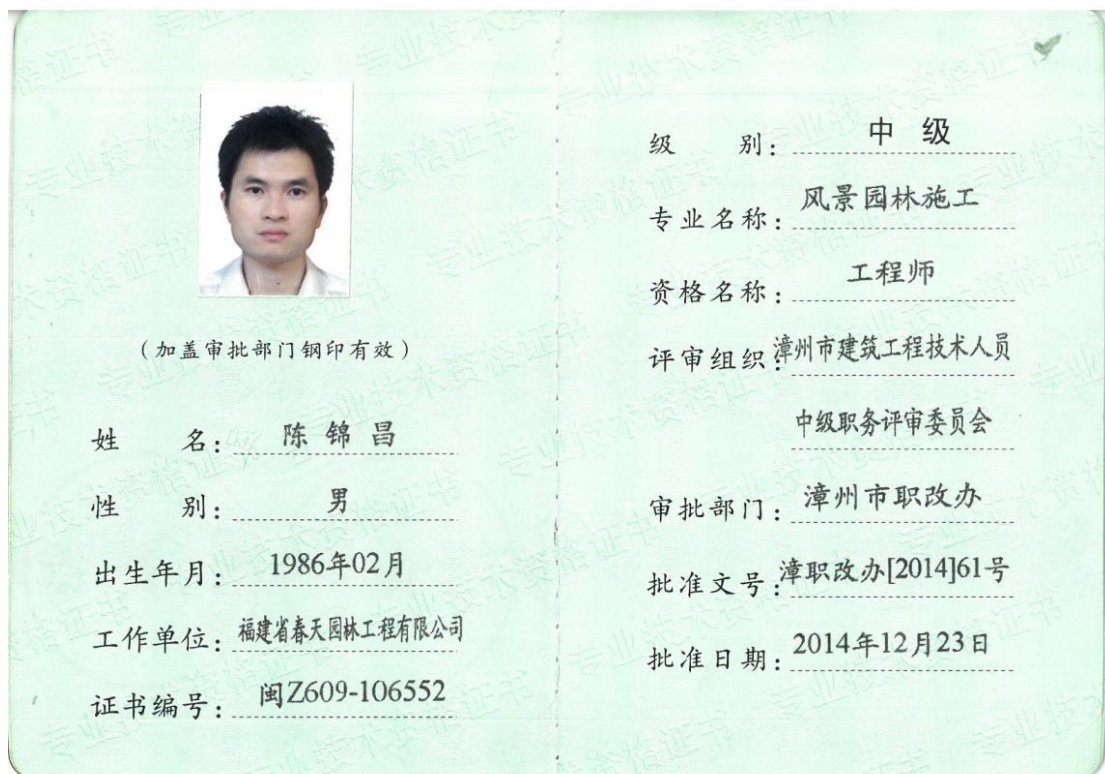 (加盖审批部门钢印有效)
姓 名: 陈锦昌
性 别: 男
出生年月: 1986年02月
工作单位: 福建省春天园林工程有限公司
证书编号: 闽Z609-106552
级 别: 中 级
专业名称: 风景园林施工
资格名称: 工程师
评审组织: 漳州市建筑工程技术人员
中级职务评审委员会
审批部门: 漳州市职改办
批准文号: 漳职改办[2014]61号
批准日期: 2014年12月23日
专业技术资格证书